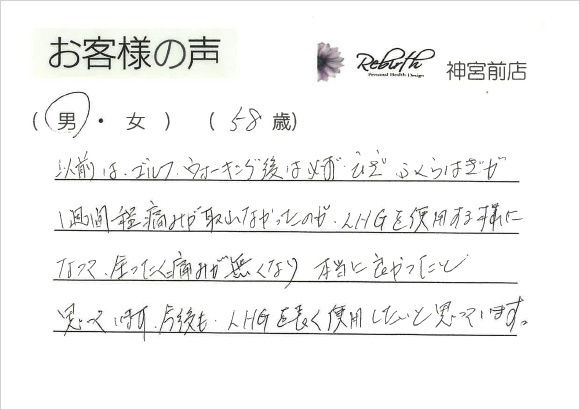 お客様の声
Rebirth
Personal Health Design
神宮前店
(男・女) (58歳)
以前は、ゴルフ、ウォーキング後は必ず、ひざ、ふくらはぎが
1週間程痛みが取れなかったのが、LHGを使用する様に
なって、全ったく痛みが無くなり 本当に良かったと
思っています。今後も、LHGを長く使用したいと思っています。